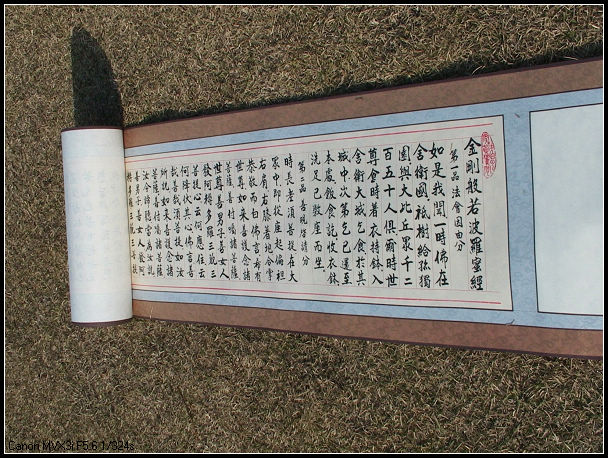 金剛般若波羅蜜經
第一品法會因由分
如是我聞一時佛在
舍衛國祇樹給孤獨
園與大比丘眾千二
百五十人俱爾時世
尊食時着衣持鉢入
舍衛大城乞食於其
城中次第乞已還至
本處飯食訖收衣鉢
洗足已敷座而坐
第二品善現啟請分
時長老須菩提在大
眾中即從座起偏袒
右肩右膝着地合掌
恭敬而白佛言希有
世尊如來善護念諸
菩薩善付囑諸菩薩
世尊善男子善女人
發阿耨多羅三藐三
菩提心云何應住云
何降伏其心佛言善
哉善哉須菩提如汝
所說如來善護念諸
菩薩善付囑諸菩薩
汝今諦聽當為汝說
善男子善女人發阿
耨多羅三藐三菩提
Canon MVX3i F5.6 1/324s